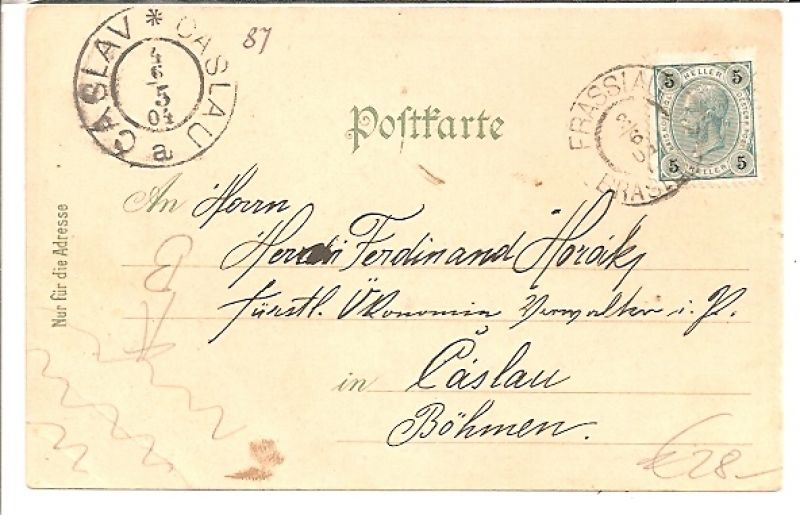 ČÁSLAV * ČASLAU
4
6
5
04
a
87
FRASSLA
5 HELLER 5
5 HELLER 5
FRASL
Postkarte
An Herrn
Herrn Ferdinand Horák,
fürstl. Ökonomie Verwalter i. P.
in Čáslau
Böhmen.
Nur für die Adresse
€ 28-